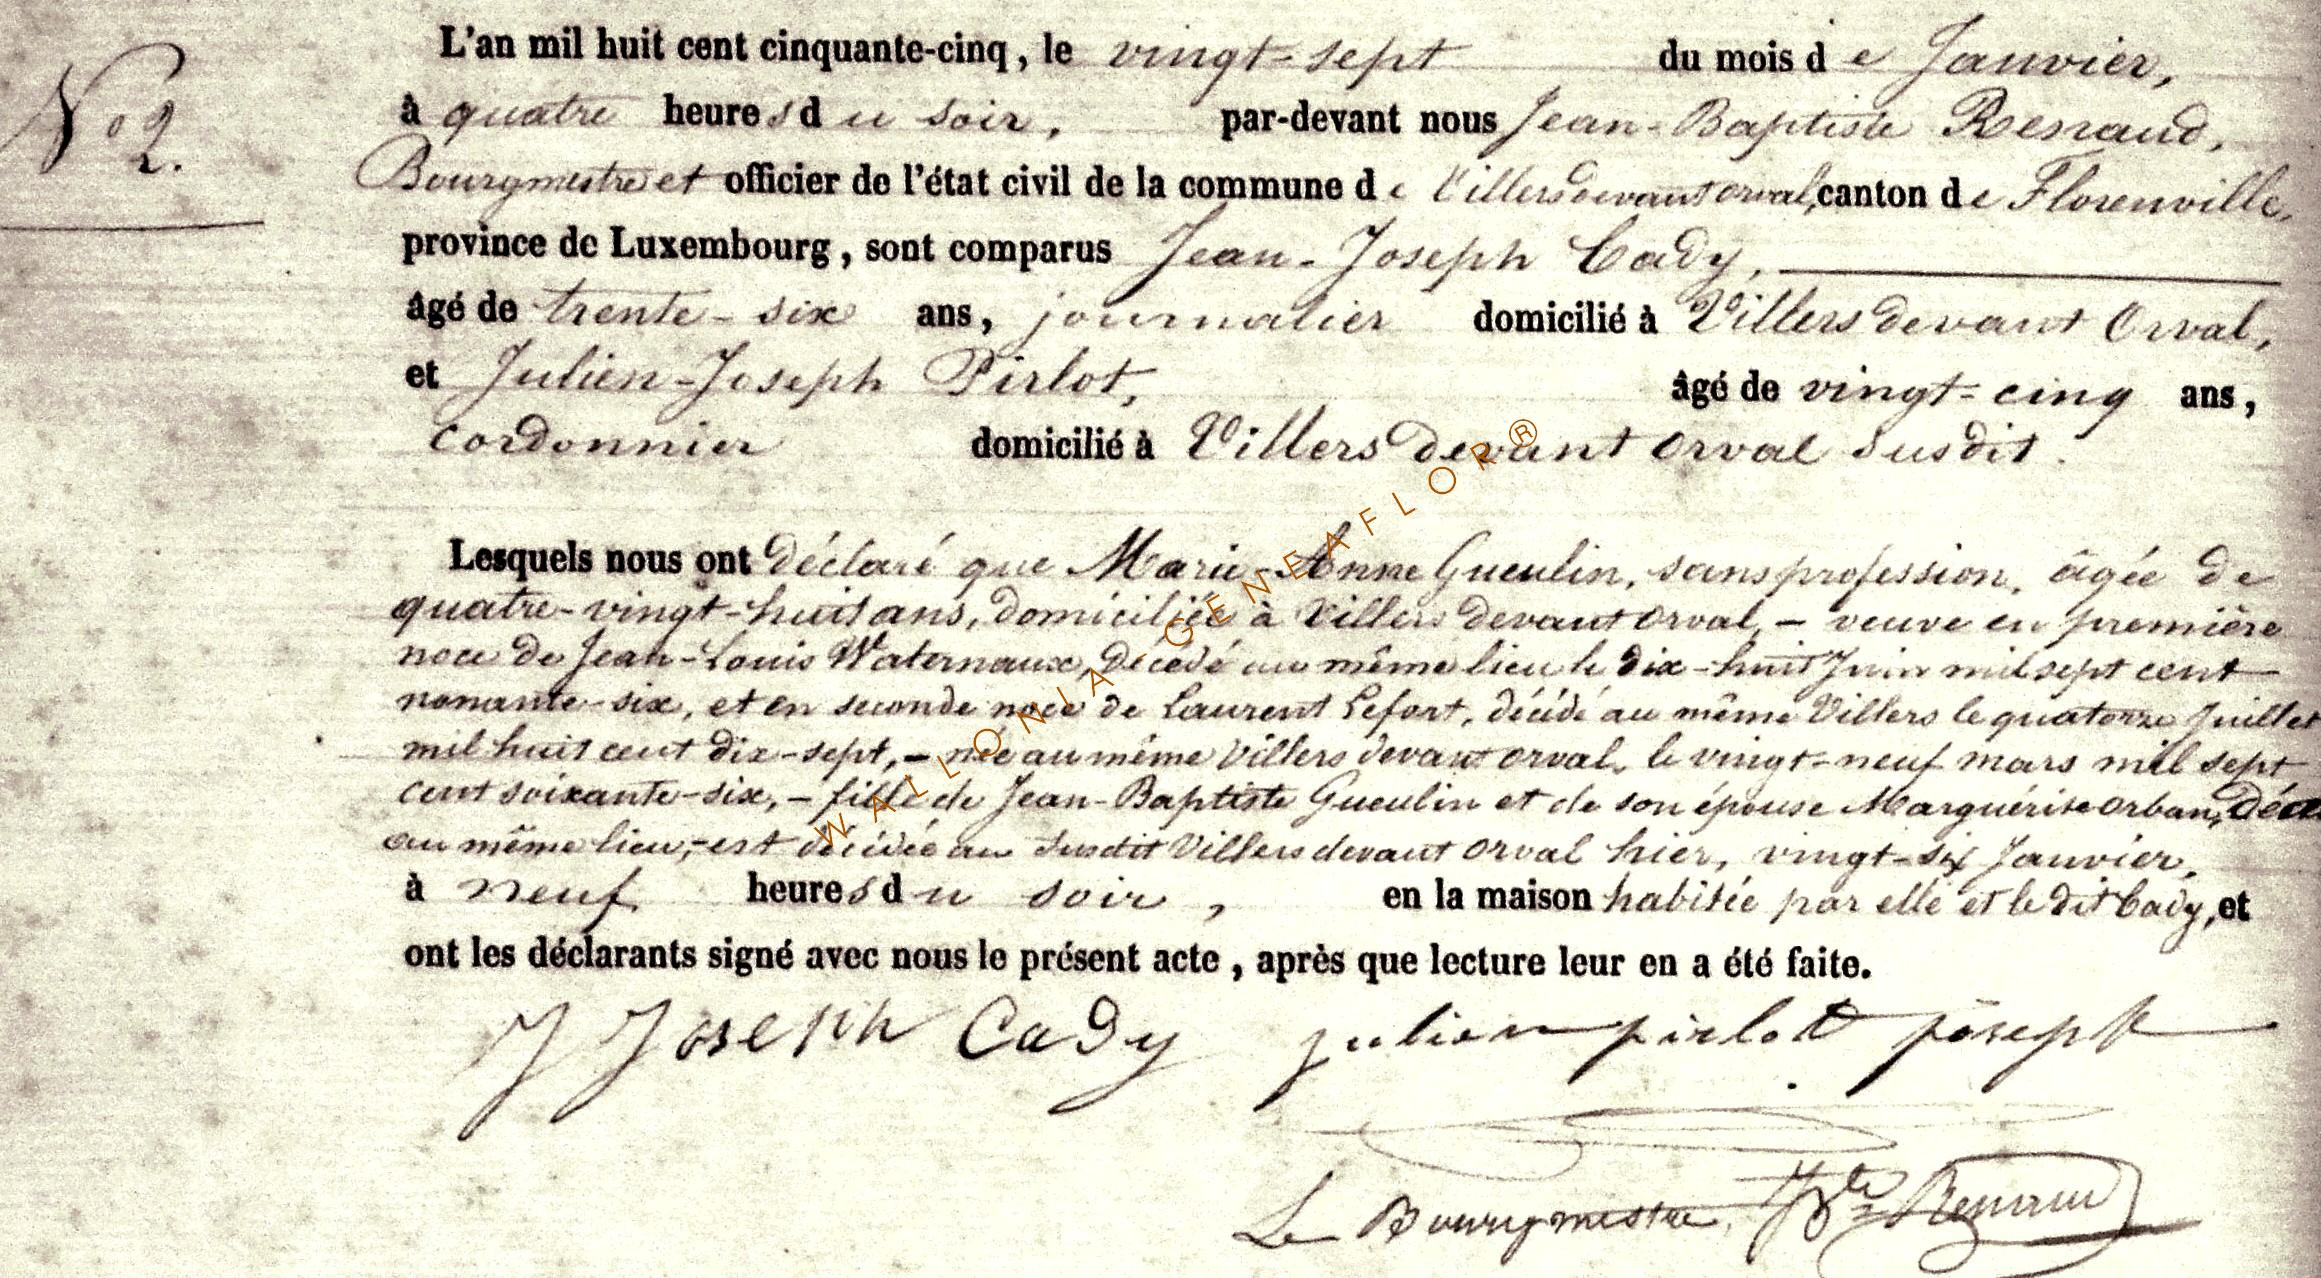 No 2.
L'an mil huit cent cinquante-cinq, le vingt-sept du mois de Janvier,
à quatre heures du soir, par-devant nous Jean-Baptiste Renaud,
Bourgmestre et officier de l'état civil de la commune de Villers devant orval, canton de Florenville,
province de Luxembourg, sont comparus Jean-Joseph Cady,
âgé de trente-six ans, journalier domicilié à Villers devant Orval,
et Julien-Joseph Pirlot, âgé de vingt-cinq ans,
cordonnier domicilié à Villers devant orval susdit.
Lesquels nous ont déclaré que Marie-Anne Gueulin, sans profession, âgée de
quatre-vingt-huit ans, domiciliée à Villers devant orval, - veuve en première
noce de Jean-Louis Waternaux, décédé au même lieu le dix-huit Juin mil sept cent
nonante-six, et en seconde noce de Laurent Lefort, décédé au même Villers le quatorze Juillet
mil huit cent dix-sept, - née au même Villers devant orval, le vingt-neuf mars mil sept
cent soixante-six, - fille de Jean-Baptiste Gueulin et de son épouse Marguérite orban,
au même lieu, - est décédée au susdit Villers devant orval hier, vingt-six Janvier,
à neuf heures du soir, en la maison habitée par elle et le dit Cady, et
ont les déclarants signé avec nous le présent acte, après que lecture leur en a été faite.
J Joseph Cady julien pirlot joseph
Le Bourgmestre, JBte Renaud
WALLONIA-GENEAFLOR®